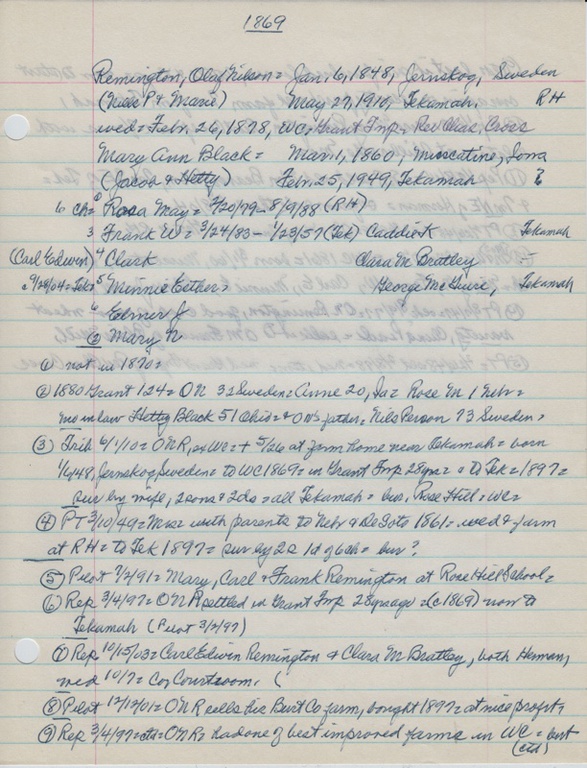 1869
Remington, Olaf Nilson = Jan. 6, 1848, Jernskog, Sweden
(Niels P & Marie) May 27, 1910, Tekamah, RH
wed = Febr. 26, 1878, WC, Grant Tmp. Rev Chas. Cross
Mary Ann Black = Mar 1, 1860, Muscatine, Iowa
(Jacob & Hetty) Febr. 25, 1949, Tekamah ?
6 ch = Rosa May = 2/20/79 - 8/9/88 (RH)
3 Frank W = 3/24/83 - 1/23/57 (Tek) Caddie K Tekamah
(Carl Edwin) 4 Clark Clara M Bratley
9/28/04 = Tek 5 Minnie Esther = George McGuire, Tekamah
6 Elmer J
② Mary N
① not in 1870 =
② 1880 Grant 124 = ON 32 Sweden = Anne 20, Ia = Rose M 1 Nebr =
mo in law Hetty Black 51 Ohio = & ON's father = Nils Person 73 Sweden =
③ Trib 6/1/10 = ONR, ex WC = + 5/26 at farm home near Tekamah = born
1/6/48, Jernskog, Sweden = to WC 1869 = in Grant Tmp 28 yrs = to Tek = 1897 =
sur by wife, 2 sons & 2 ds = all Tekamah = bur. Rose Hill = WC =
④ PT 3/10/49 = Moss with parents to Nebr & DeSoto 1861 = wed & farm
at RH = to Tek 1897 = sur by 2s 1d of 6 ch = bur?
⑤ Pilot 7/2/91 = Mary, Carl & Frank Remington at Rose Hill School =
⑥ Rep 3/4/97 = ONR settled in Grant Tmp 28 yrs ago = (c. 1869) now to
Tekamah (Pilot 3/2/97)
⑦ Rep 10/15/03 = Carl Edwin Remington & Clara M Bratley, both Herman,
wed 10/7 = Co, Courtroom, (
⑧ Pilot 12/12/01 = ONR sells his Burt Co farm, bought 1897 = at nice profit =
⑨ Rep 3/4/97 = ONR had one of best improved farms in WC = but
(ctd)